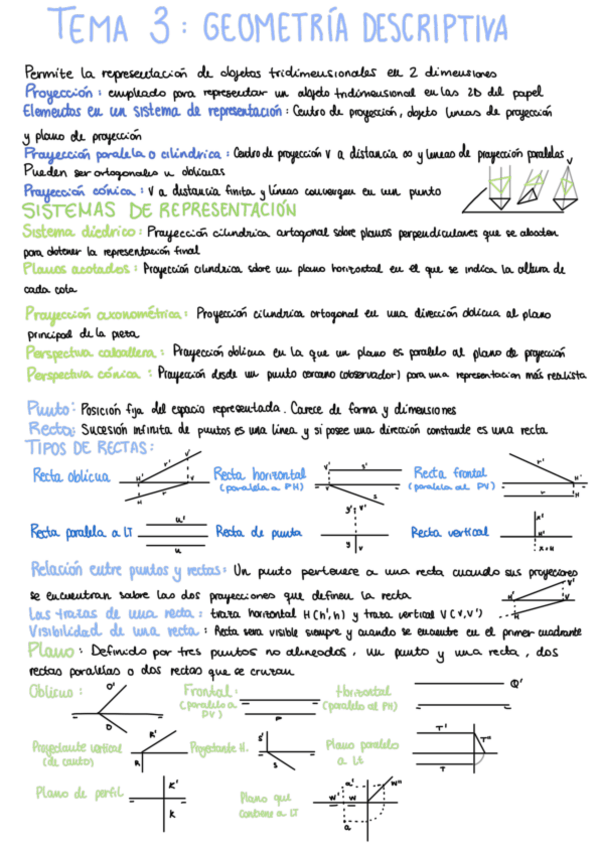 TEMA 3: GEOMETRÍA DESCRIPTIVA
Permite la representación de objetos tridimensionales en 2 dimensiones
Proyección: empleado para representar un objeto tridimensional en las 2D del papel
Elementos en un sistema de representación: Centro de proyección, objeto lineas de proyección
y plano de proyección
Proyección paralela o cilíndrica: Centro de proyección V a distancia ∞ y lineas de proyección paralelas
Pueden ser ortogonales u oblicuas
Proyección cónica: V a distancia finita y líneas convergen en un punto
V
SISTEMAS DE REPRESENTACIÓN
Sistema diédrico: Proyección cilindrica ortogonal sobre planos perpendiculares que se abaten
para obtener la representación final
Planos acotados: Proyección cilindrica sobre un plano horizontal en el que se indica la altura de
cada cota
Proyección axonométrica: Proyección cilindrica ortogonal en una dirección oblicua al plano
principal de la pieza
Perspectiva caballera: Proyección oblicua en la que un plano es paralelo al plano de proyección
Perspectiva cónica: Proyección desde un punto cercano (observador) para una representación más realista
Punto: Posición fija del espacio representada. Carece de forma y dimensiones
Recta: Sucesión infinita de puntos es una linea y si posee una dirección constante es una recta
TIPOS DE RECTAS:
Recta oblicua
H' r' V' V r H
Recta horizontal
(paralela a PH)
V' s' V s
Recta frontal
(paralela al PV)
r' H' r H
Recta paralela a LT
u'
u
Recta de punta
s' V'
s V
Recta vertical
x'
H'
x=H
Relación entre puntos y rectas: Un punto pertenece a una recta cuando sus proyecciones
se encuentran sobre las dos proyecciones que definen la recta
Las trazas de una recta: traza horizontal H(h',h) y traza vertical V(v,v')
H' V' V H
Visibilidad de una recta: Recta sera visible siempre y cuando se encuentre en el primer cuadrante
Plano: Definido por tres puntos no alineados, un punto y una recta, dos
rectas paralelas o dos rectas que se cruzan
Oblicuo:
O'
O
Frontal:
(paralelo a
PV)
P
Horizontal
(paralelo al PH)
Q'
Proyectante vertical
(de canto)
R'
R
Proyectante H.
S'
S
Plano paralelo
a Lt
T'
T"
T
Plano de perfil
K'
K
Plano que
contiene a LT
W' W a' W" a